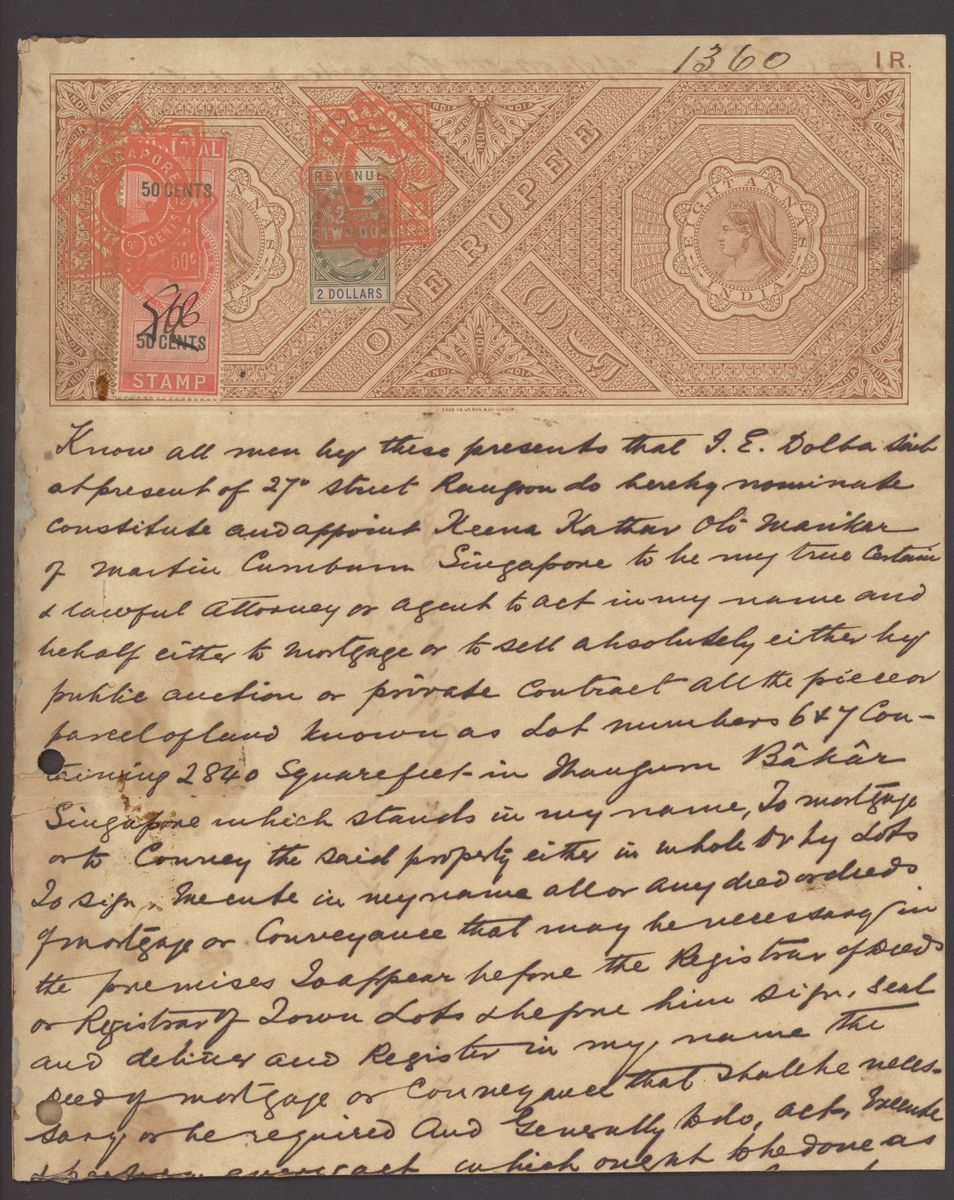 1360
1 R.
SINGAPORE
JUDICIAL
50 CENTS
50 CENTS
STAMP
SINGAPORE
REVENUE
$2
TWO DOLLARS
2 DOLLARS
ONE RUPEE
EIGHT ANNAS
INDIA
Know all men by these presents that I. E. Dolba
at present of 27th street Rangoon do hereby nominate
constitute and appoint Keena Kathar Oli Marikar
of Martin Cumbum Singapore to be my true Certain
& lawful Attorney or agent to act in my name and
behalf either to mortgage or to sell absolutely either by
public auction or private Contract all the piece or
parcel of land known as Lot numbers 6 & 7 Con-
taining 2840 Square feet in Bâhâr
Singapore which stands in my name, To mortgage
or to Convey the said property either in whole or by Lots
To sign, execute in my name all or any deed or deeds
of mortgage or Conveyance that may be necessary in
the premises To appear before the Registrar of Deeds
or Registrar of Town Lots & before him sign, seal
and deliver and Register in my name the
deed of mortgage or Conveyance that shall be neces-
sary or be required And Generally to do, act, Execute
& perform every act which ought to be done as